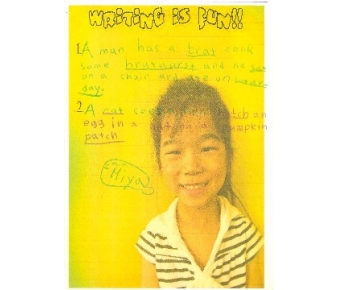 WRITING IS FUN!!
1. A man has a brat cook
some bratwurst and he sat
on a chair and ate on
day.
2 A cat
egg in a on a pumpkin
patch
Hiya